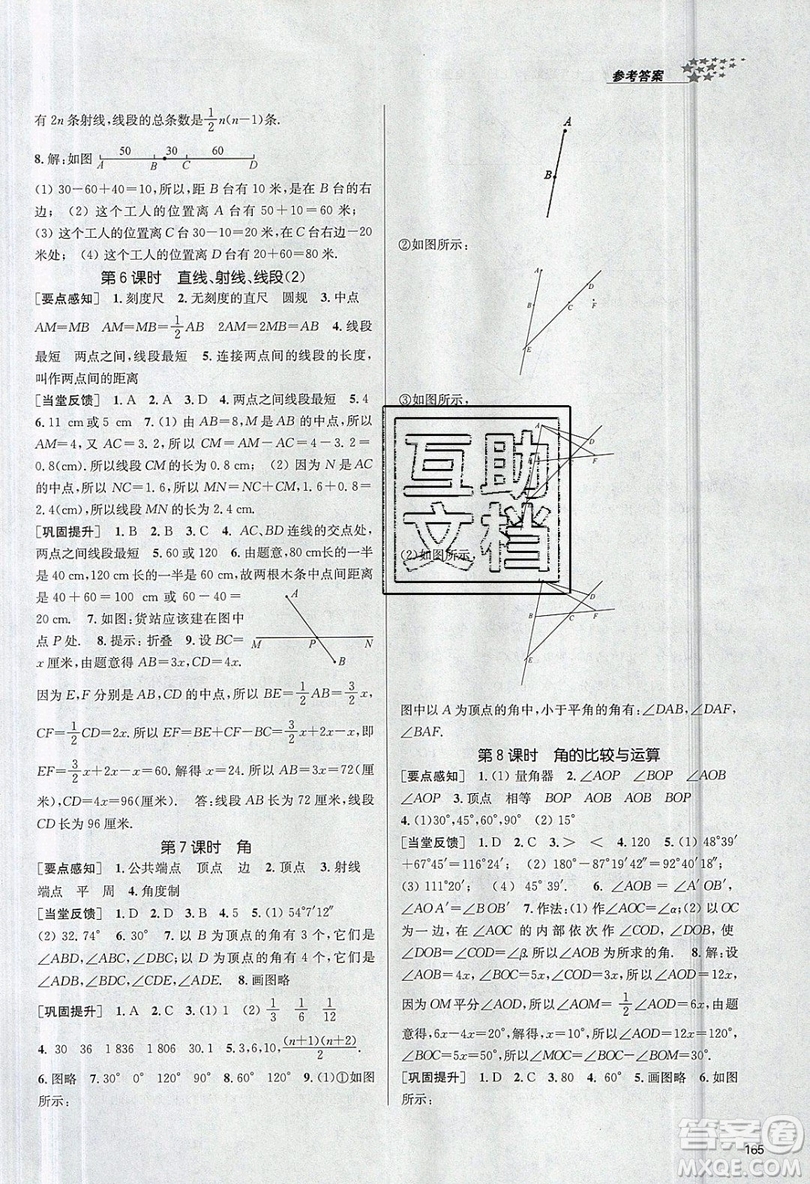 参考答案
有 2n 条射线,线段的总条数是 1/2 n(n−1)条.
8. 解:如图
50 30 30
A B C D
(1) 30−60+40=10,所以,距 B 台有 10 米,在 B 台的右
边; (2) 这个工人的位置离 A 台有 50+10=60 米;
(3) 这个工人的位置离 C 台有 30−10=20,在 C 台右 20
米处; (4) 这个工人的位置离 D 台有 20+60=80 米.
第 6 课时 直线、射线、线段(2)
[要点感知] 1. 刻度尺 2. 无刻度的直尺 圆规 3. 中点
AM=MB AM=MB=1/2 AB 2AM=2MB=AB 4. 线段
最短 两点之间,线段最短 5. 连接两点间的线段的长度,
叫作两点间的距离
[当堂反馈] 1. A 2. A 3. D 4. 两点之间线段最短 5. 4
6. 11 cm或5 cm 7. (1) 由 AB=8,M 是 AB 的中点,所以
AM=4,又 AC=3.2,所以 CM=AM−AC=4−3.2=
0.8(cm).所以线段 CM 的长为 0.8 cm; (2) 因为 N 是 AC
的中点,所以 NC=1.6,所以 MN=NC+CM=1.6+0.8=
2.4(cm),所以线段 MN 的长为 2.4 cm.
[巩固提升] 1. B 2. B 3. C 4. AC,BD 连线的交点处,
两点之间线段最短 5. 60或 120 6. 由题意,80 cm 长的一半
是 40 cm,120 cm 长的一半是 60 cm,故两根木条中点间距离
是 40+60=100(cm)或 60−40=
20 cm. 7. 如图:货站应该建在图中
点 P 处. 8. 提示:折叠 9. 设 BC=
x 厘米,由题意得 AB=3x,CD=4x,
A
M P N
B
因为 E,F 分别是 AB,CD 的中点,所以 BE=1/2 AB=3/2 x,
CF=1/2 CD=2x. 所以 EF=BE+CF−BC=3/2 x+2x−x,即
EF=5/2 x,所以 5/2 x=60,解得 x=24. 所以 AB=3x=72(厘
米),CD=4x=96(厘米). 答:线段 AB 长为 72 厘米,线段
CD 长为 96 厘米.
第 7 课时 角
[要点感知] 1. 公共端点 顶点 边 2. 顶点 3. 射线
端点 平 周 4. 角度制
[当堂反馈] 1. D 2. D 3. B 4. 5 5. (1) 54°7′12″
(2) 32.74° 6. C 7. 以 B 为顶点的角有 3 个,它们是
∠ABD、∠ABC、∠DBC;以 D 为顶点的角有 4 个,它们是
∠ADE、∠BDC、∠CDE、∠ADB. 8. 画图略
[巩固提升] 1. A 2. C 3. (1) 1 (2) 1/4 1/6 1/12
4. 30 36 1 836 1 806 30.1 5. 3,6,10,(n+1)(n+2)/2.
6. 图略 7. 30° 0° 120° 90° 8. 60° 120° 9. (1)①如图
所示:
A
B
②如图所示:
A
B
C
F
E
③如图所示,
A
D
F
(2)如图所示,
A
D
B
C
F
E
图中以 A 为顶点的角中,小于平角的角有:∠DAB,∠DAF,
∠BAF.
第 8 课时 角的比较与运算
[要点感知] 1. (1) 量角器 2. ∠AOP ∠BOP ∠AOB
∠AOP 3. 顶点 相等 BOP AOP AOB BOP
4. (1)30°,45°,60°,90° (2) 15°
[当堂反馈] 1. D 2. C 3. > < 4. 120 5. (1) 48°39′
+67°45′=116°24′; (2) 90°−78°19′40″=11°40′20″;
(3) 111°20′; (4) 37°30′ 6. ∠AOB=∠A′OB′,
∠AOA′=∠BOB′ 7. 作法:(1) 作∠AOC=∠α;(2) 以射线
OC 为一边,在∠AOC 的内部依次作∠COD,∠DOB,使
∠COD=∠DOB=∠β.则∠AOB 为所求的角. 8. 解:设
∠AOB=3x,∠BOC=∠COD=∠DOA=3x,则∠AOD=6x,
因为 OM 平分∠AOD,所以∠AOM=1/2∠AOD=3x,由题
意得,6x−4x=20°,解得,x=10°,所以∠AOM=3x=30°,
∠BOC=5x=50°; 所以∠AOD=12x=120°, 所以
∠BOC=∠AOC−∠AOB=50°.
[巩固提升] 1. D 2. C 3. 80 4. 60° 5. 画图略 6. 如图
所示:
互助
文档
答案圈
MXQE.COM
165